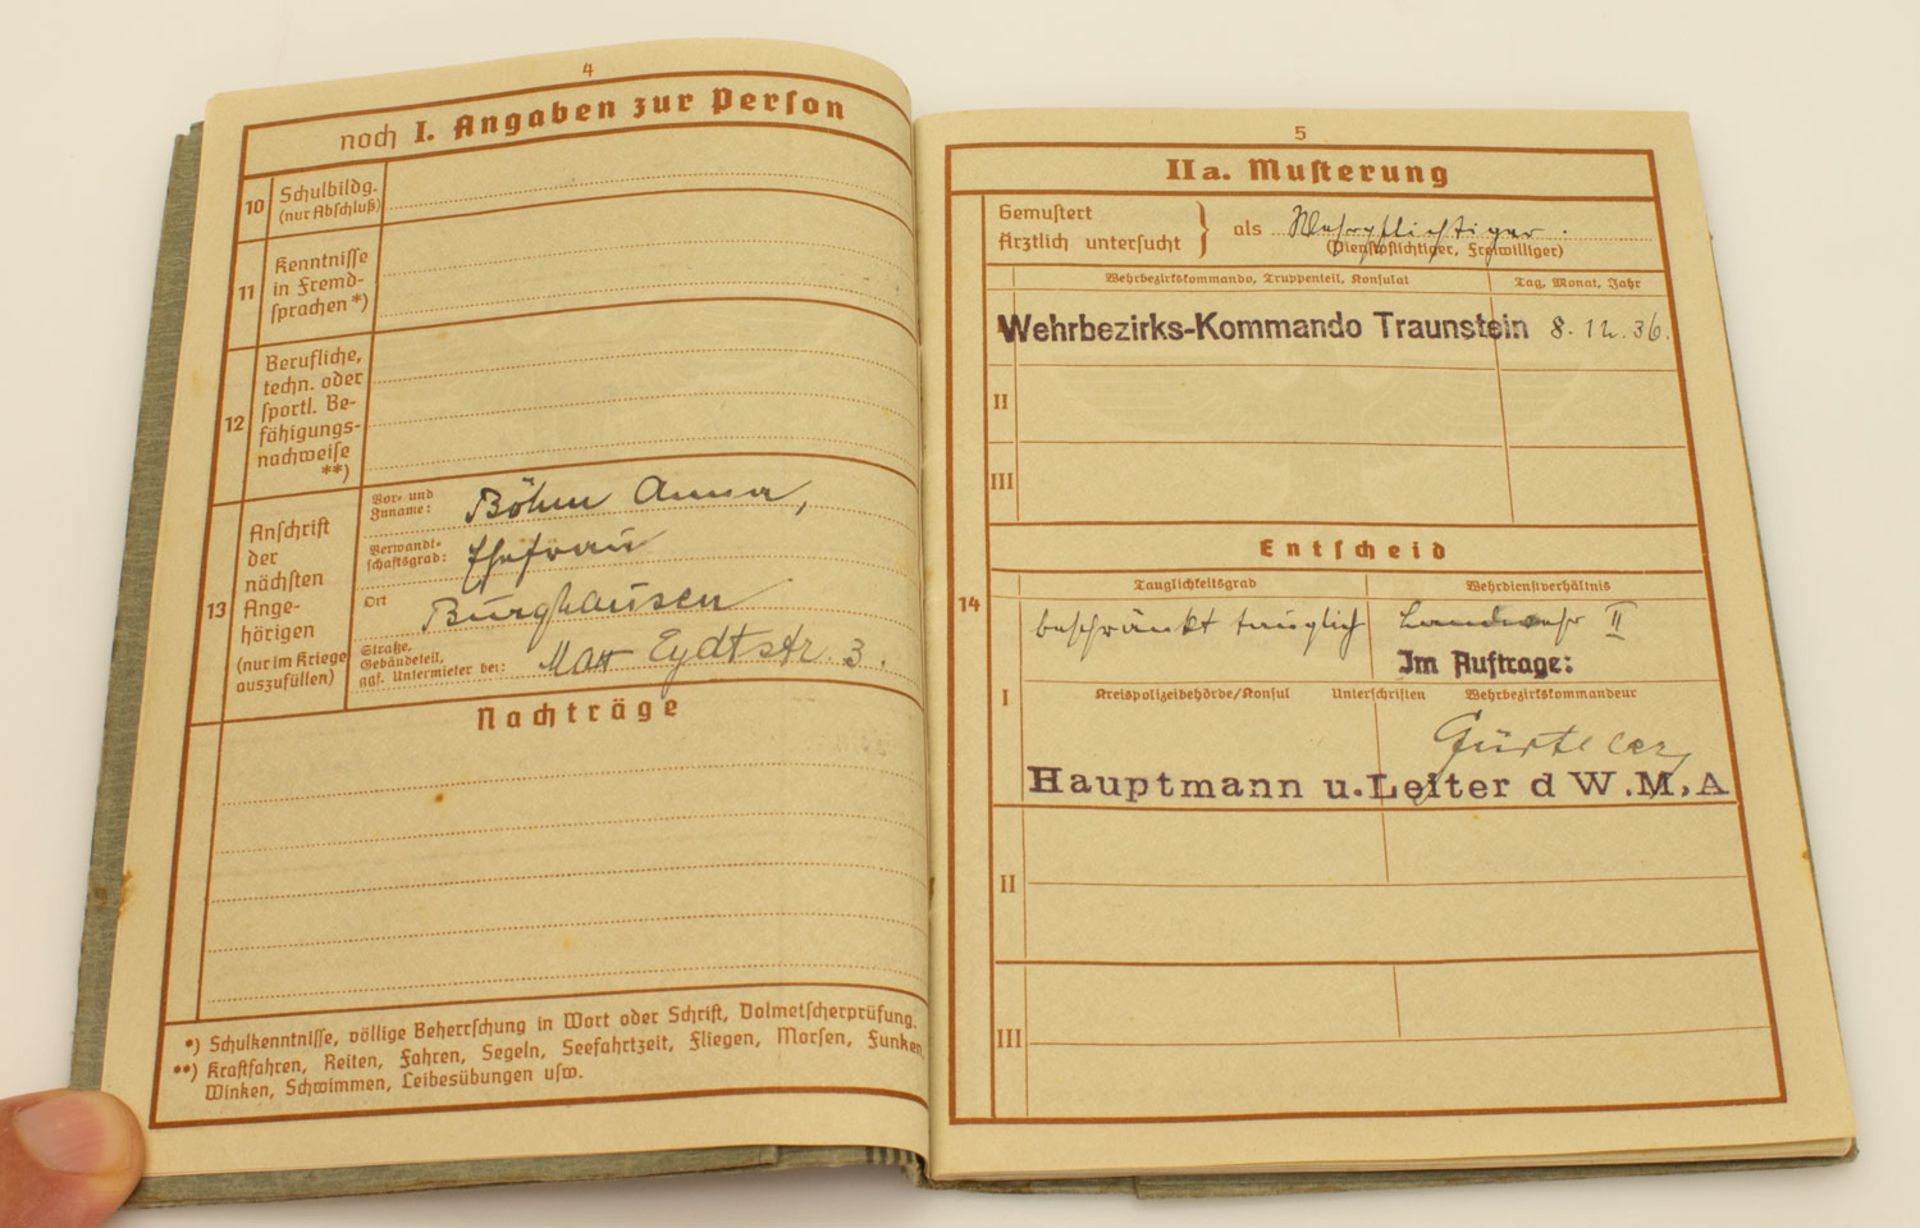 4
noch I. Angaben zur Person
10
Schulbildg.
(nur Abschluß)
11
Kenntnisse
in Fremd-
sprachen *)
12
Berufliche,
techn. oder
sportl. Be-
fähigungs-
nachweise
**)
13
Anschrift
der
nächsten
Ange-
hörigen
(nur im Kriege
auszufüllen)
Vor- und
Zuname: Böhm Anna,
Verwandt-
schaftsgrad: Ehefrau
Ort Burghausen
Straße,
Gebäudeteil,
ggf. Untermieter bei: Max Eydtstr. 3.
Nachträge
*) Schulkenntnisse, völlige Beherrschung in Wort oder Schrift, Dolmetscherprüfung.
**) Kraftfahren, Reiten, Fahren, Segeln, Seefahrtzeit, Fliegen, Morsen, Funken,
Winken, Schwimmen, Leibesübungen usw.
5
IIa. Musterung
Gemustert
Ärztlich untersucht } als Wehrpflichtiger.
(Dienstpflichtiger, Freiwilliger)
Wehrbezirkskommando, Truppenteil, Konsulat Tag, Monat, Jahr
Wehrbezirks-Kommando Traunstein 8.12.36.
II
III
Entscheid
14
Tauglichkeitsgrad Wehrdienstverhältnis
beschränkt tauglich Landwehr II
Im Auftrage:
I
Kreispolizeibehörde/Konsul Unterschriften Wehrbezirkskommandeur
Hauptmann u. Leiter d W.M,A
II
III